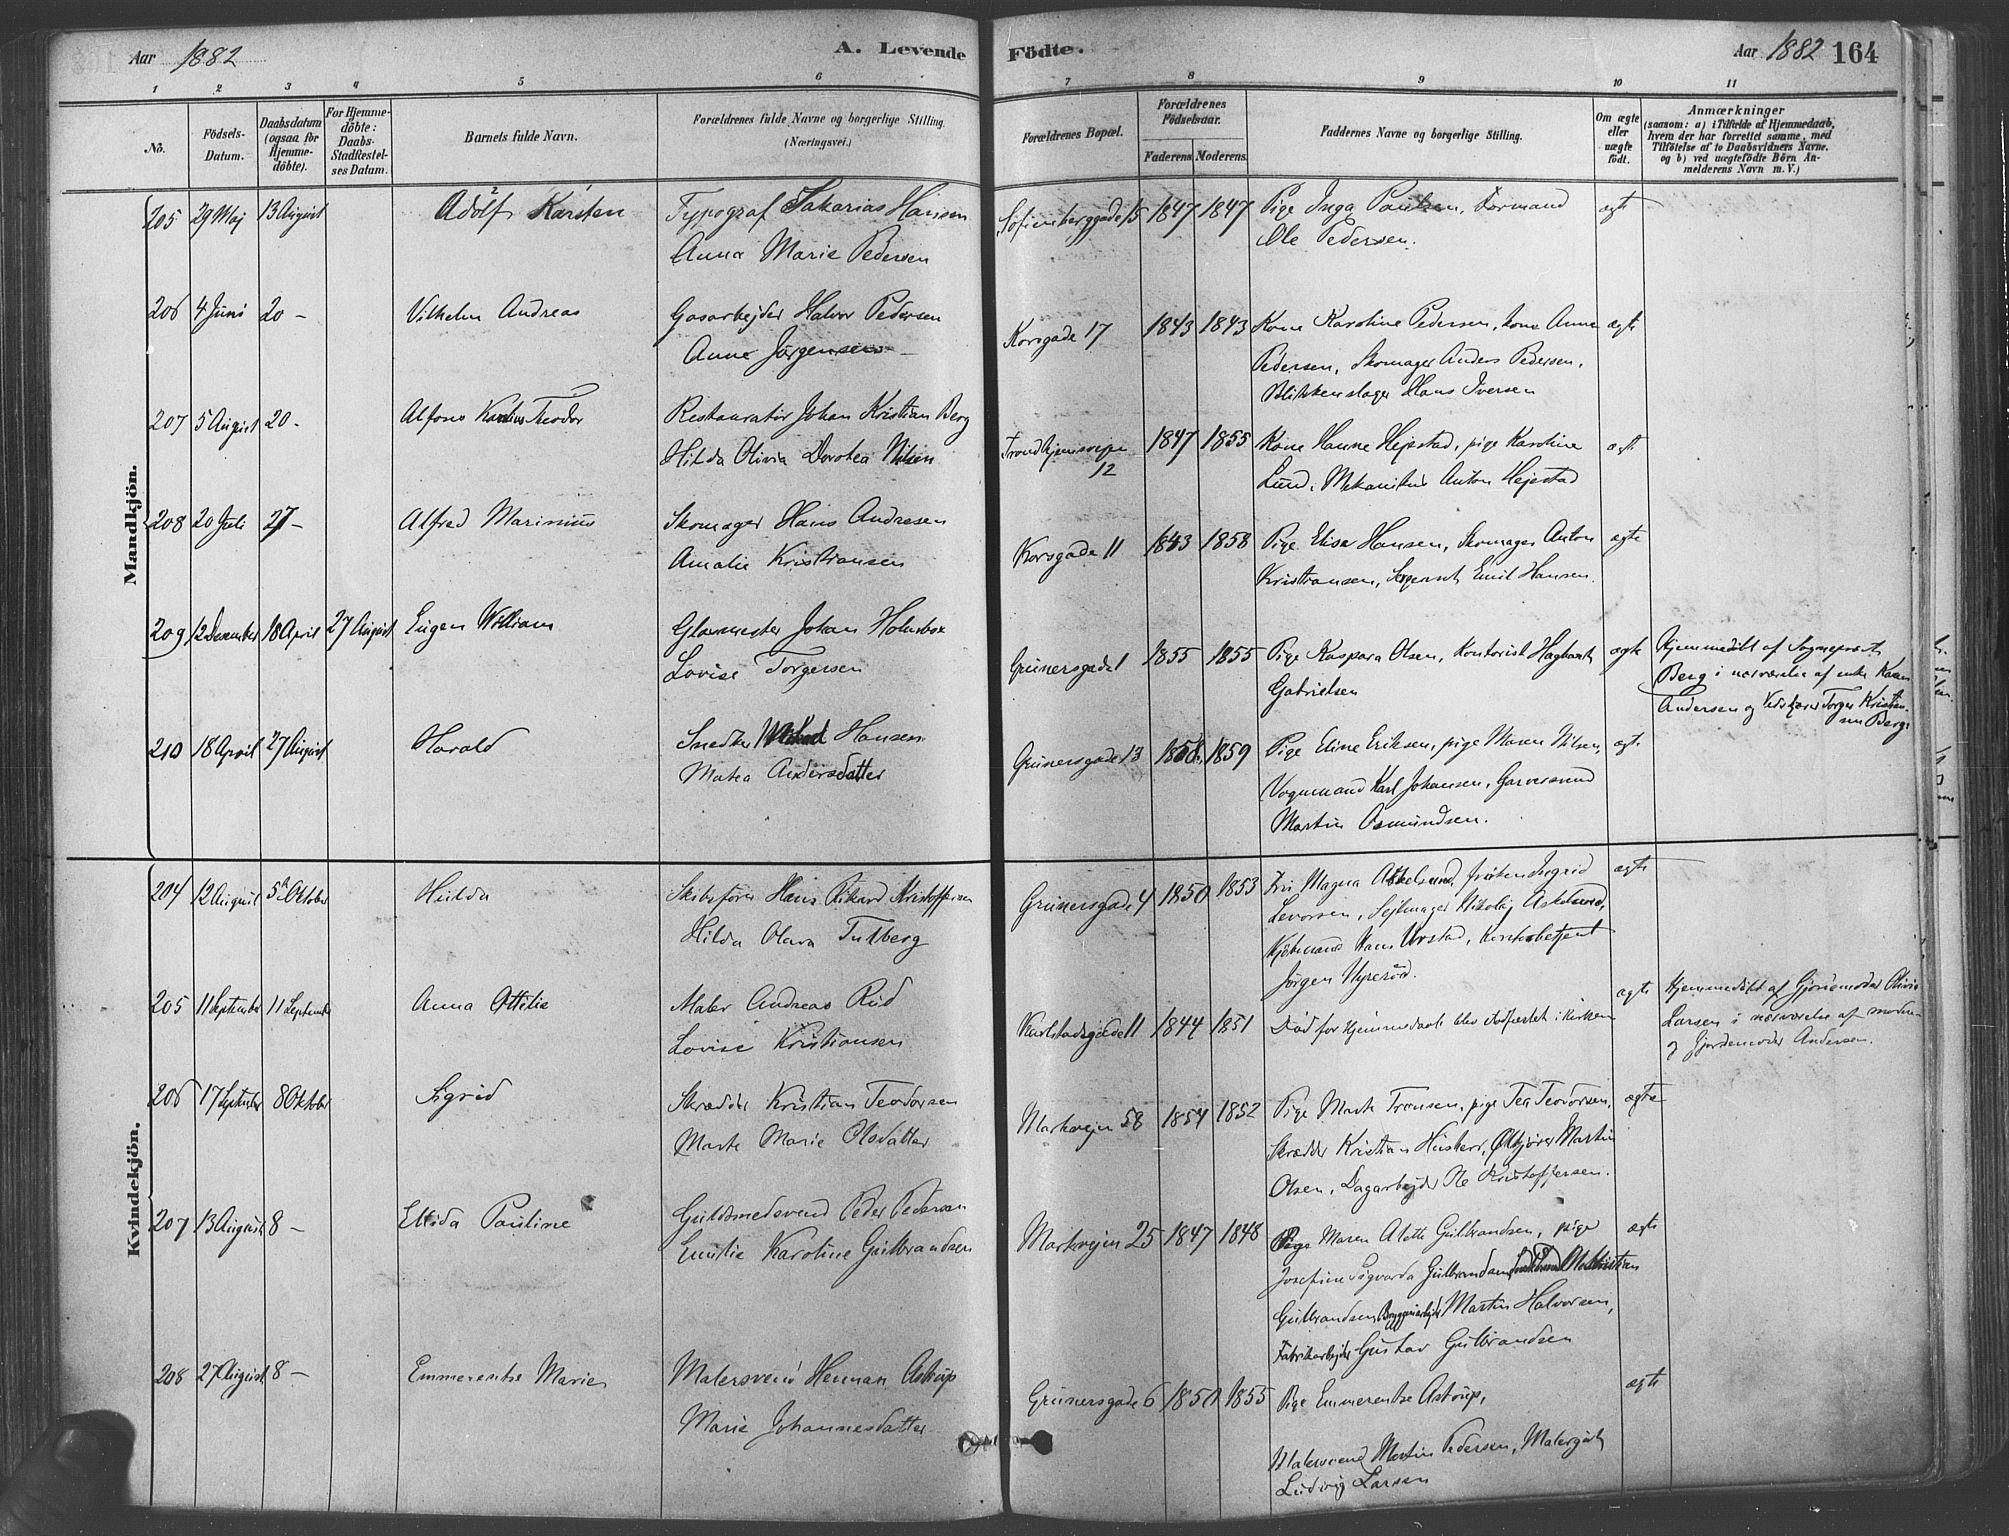 Aar 1882 A. Levende Födte. Aar 1882 164
1 2 3 4 5 6 7 8 9 10 11
No.
Födsels-
Datum.
Daabsdatum
(ogsaa for
Hjemme-
döbte).
For Hjemme-
döbte:
Daabs-
Stadfæstel-
ses Datum.
Barnets fulde Navn.
Forældrenes fulde Navne og borgerlige Stilling.
(Næringsvei.)
Forældrenes Bopæl.
Forældrenes
Födselsaar.
Faderens Moderens.
Faddernes Navne og borgerlige Stilling.
Om ægte
eller
uægte
födt.
Anmærkninger
(saasom: a) i Tilfælde af Hjemmedaab,
hvem der har forrettet samme, med
Tilföielse af to Daabsvidners Navne.
og b) ved uægtefödte Börn An-
melderens Navn m. V.)
Mandkjön.
205 29 Maj 13 August Adolf Karsten Typograf Sakarias Hansen Sofienberggade 15 1847 1847 Pige Inga Paulsen, Formand ægte
Anna Marie Pedersen Ole Pedersen.
206 4 Juni 20 - Vilhelm Andreas Gasarbejder Halvor Pedersen Korsgade 17 1843 1843 Kone Karoline Pedersen, kone Anne ægte
Anne Jørgensen Pedersen, Skomager Anders Pedersen,
Blikkenslager Hans Iversen
207 5 August 20 - Alfons Teodor Restauratør Johan Kristian Berg Trondhjemsvejen 12 1847 1855 Kone Hanne Hejestad, pige Karoline ægte
Hilda Olivia Dorotea Nilsen Lund, Mekanikus Anton Hejestad
208 20 Juli 27 - Alfred Marinius Skomager Hans Andresen Korsgade 11 1843 1858 Pige Elise Hansen, Skomager Anton ægte
Amalie Kristiansen Kristiansen, Sergeant Emil Hansen.
209 12 Desember 18 April 27 August Eugen William Glasmester Johan Holmboe Grünersgade 1 1855 1855 Pige Kaspara Olsen, Kontorist Hagbart ægte Hjemmedøbt af Sogneprest
Lovise Torgersen Gabrielsen Berg i nærværelse af enke Karen
Andersen og Torger Kristian-
sen Berg.
210 18 April 27 August Harald Snedker Hansen Grünersgade 13 1858 1859 Pige Eline Eriksen, pige Maren Nilsen, ægte
Matea Andersdatter Vognmand Karl Johansen, Garversvend
Martin Osmundsen.
Kvindekjön.
204 12 August 5 Oktober Hulda Skibsfører Hans Rikard Kristoffersen Grünersgade 4 1850 1853 Magna Askelsund, frøken Ingrid ægte
Hilda Olava Levorsen, Sejlmager Nikolaj Askelsund,
Kjøbmand Hans Urstad, Kontorbetjent
Jørgen
205 11 September 11 September Anna Ottilie Maler Andreas Rud Karlstadsgade 11 1844 1851 Død før Hjemmedaab blev stadfæstet i Kirken ægte Hjemmedøbt af Gjordemoder Olivia
Lovise Kristiansen Larsen i nærværelse af moder
og Gjordemoder Andersen.
206 17 September 8 Oktober Sigrid Skrædder Kristian Teodorsen Markvejen 58 1854 1852 Pige Marte Tronsen, pige Tea Teodorsen, ægte
Marte Marie Olsdatter Skrædder Kristian Martin
Olsen, Dagarbejder Ole Kristoffersen.
207 13 August 8 - Ellida Pauline Guldsmedsvend Peder Pedersen Markvejen 25 1847 1848 Pige Maren Alette Gulbrandsen, pige ægte
Emilie Karoline Gulbrandsen Josefine Sigvarda Gulbrandsen, Ole Kristian
Gulbrandsen, Bryggeriarbejder Martin Halvorsen,
Fabrikarbejder Gustav Gulbrandsen
208 27 August 8 - Emmerentse Marie Malersvend Herman Astrup Grünersgade 6 1850 1855 Pige Emmerentse Astrup, ægte
Marie Johannesdatter Malersvend Martin Pedersen, Malersvend
Ludvig Larsen